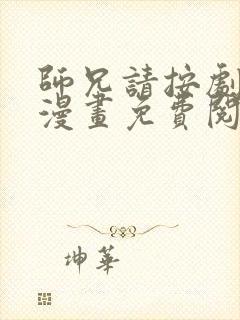 師兄請按劇
漫畫免費閱
坤華